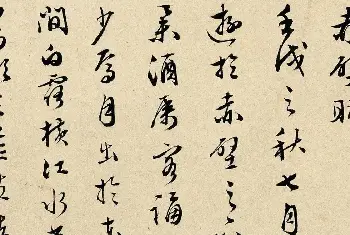 赤壁賦
壬戌之秋七月
遊於赤壁之
舉酒屬客誦
少焉月出於東
間白露橫江水